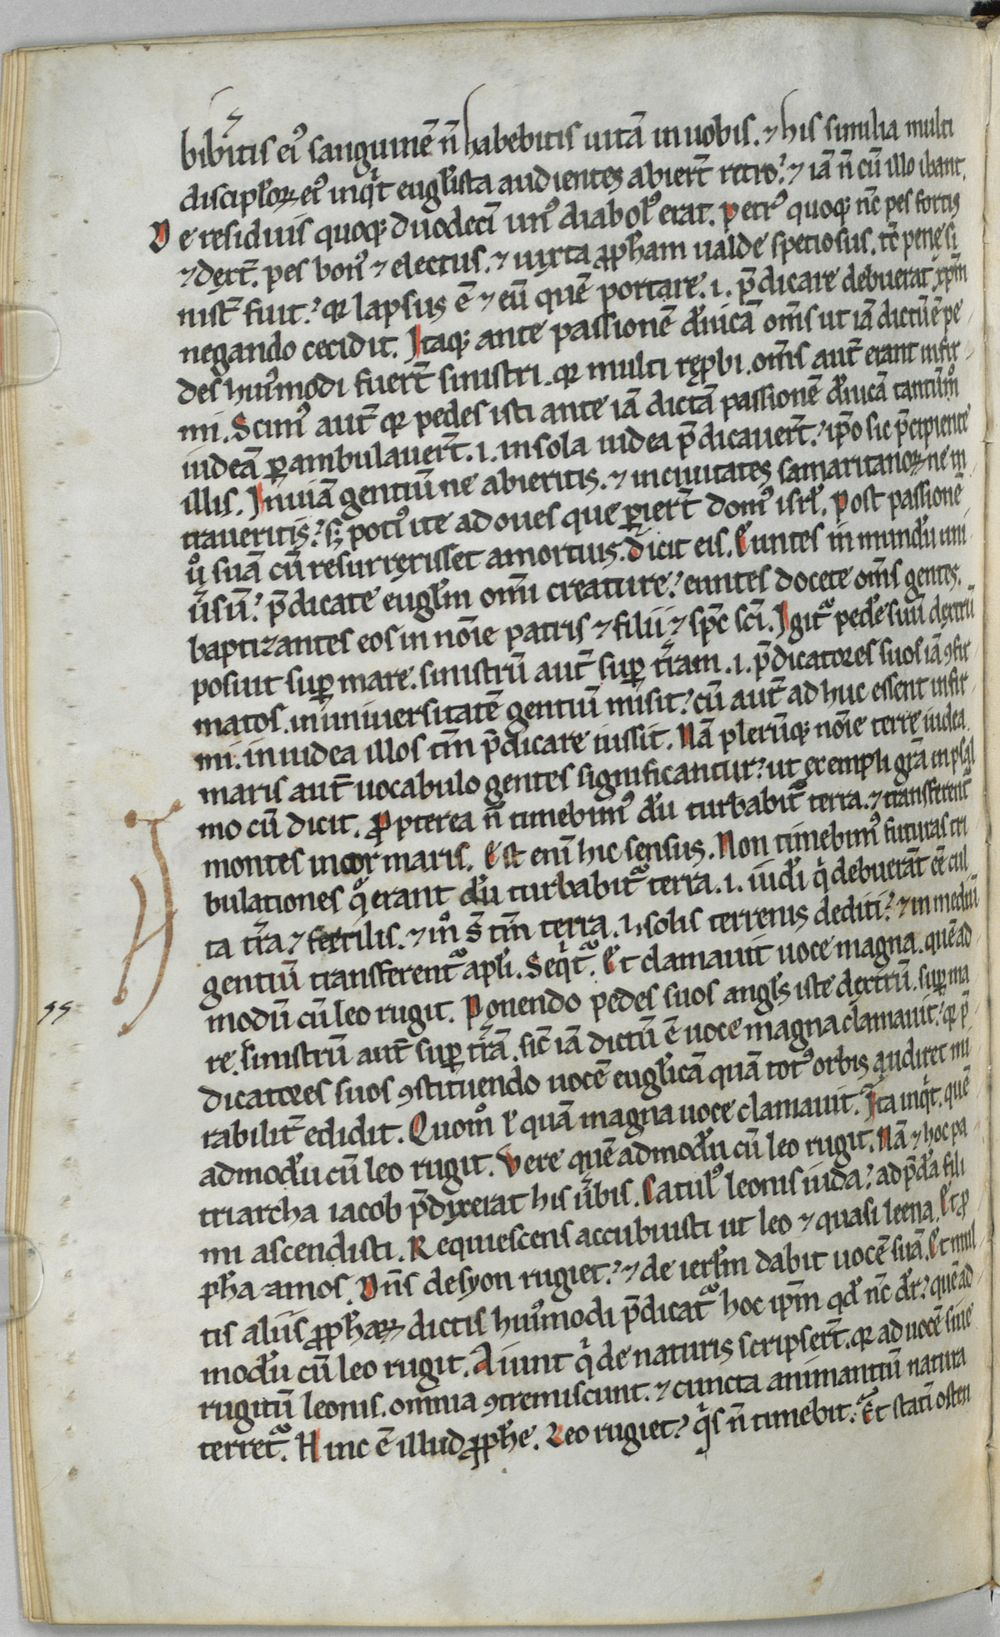 bibitis ei᷒ sanguinē n̄ habebitis uitā in uobis. ⁊ his similia multi
discipl̓oꝝ ei᷒ inqͥt eugl̓ista audientes abiert̄ retro? ⁊ iā n̄ cū illo ibant.
De residuis quoqꝫ duodecī un᷒ diabol᷒ erat. Petr᷒ quoqꝫ nc̄ pes fortis
⁊ dext̄. pes bon᷒ ⁊ electus. ⁊ iuxta ꝓph̄am ualde speciosus. tc̄ penę si
nist̄ fuit? qꝛ lapsus ē ⁊ eū quē portare .i. p̄dicare debuerat xp̄m
negando cecidit. Itaqꝫ ante passionē dn̄icā om̄s ut iā dictū ē pe
des hui᷒modi fuert̄ sinistri. qꝛ multi rep̄bi. om̄s aut̄ erant infir
mi. Scim᷒ aut̄ qꝛ pedes isti ante iā dictā passionē dn̄icā tantūm̊
iudeā ꝑambulauert̄ .i. in sola iudea p̄dicauert̄? ip̄o sic p̄cipiente
illis. In uiā gentiū ne abieritis. ⁊ in ciuitates samaritanoꝝ ne in
traueritis? sꝫ poti᷒ ite ad oues que ꝑiert̄ dom᷒ isrl̓. Post passionē
ů suā cū resurrexisset a mortuis. dicit eis. Euntes in mundū uni
ūsū? p̄dicate eugl̓m omī creature? euntes docete om̄s gentes.
baptizantes eos in noīe patris ⁊ filii ⁊ spc̄ sc̄i. Igitͬ pedē suū dextrū
posuit suꝑ mare. sinistrū aut̄ suꝑ t̄ram .i. p̄dicatores suos iā ꝯfir
matos. in uniuersitatē gentiū misit? cū aut̄ ad huc essent infir
mi. in iudea illos tm̄ p̄dicare iussit. Nā plerūqꝫ noīe terrę iudea
maris aut̄ uocabulo gentes significantur? ut exempli gr̄a in psal
mo cū dicit. Ꝓpterea n̄ timebim᷒ dū turbabitͬ terra. ⁊ transferent̄
montes in cor maris. Est enī hic sensus. Non timebim᷒ futuras tri
bulationes q̊ erant dū turbabitͬ terra .i. iudei qͥ debuerāt eē cul
ta t̄ra ⁊ fertilis. ⁊ m̊ s̄ tm̄ terra .i. solis terrenis dediti? ⁊ in mediū
gentiū transferentͬ apl̓i. Seqͥtͬ. Et clamauit uoce magna. quē ad
modū cū leo rugit. Ponendo pedes suos angl̓s iste dextrū. suꝑ ma
re. sinistrū aut̄ suꝑ t̄rā. sic̄ iā dictū ē uoce magna clamauit? qꝛ p̄
dicatores suos ꝯstituendo uocē eugl̓icā quā tot᷒ orbis audiret mi
rabilit̄ edidit. Quom̊ ł quā magna uoce clamauit. Ita inqͥt. quē
admodū cū leo rugit. Vere quē admodū cū leo rugit. Nā ⁊ hoc pa
triarcha iacob p̄dixerat his ūbis. Catul᷒ leonis iuda? ad p̄dā fili
mi ascendisti. Requiescens accubuisti ut leo ⁊ quasi leena. Et ꝓ
ph̄a amos. Dn̄s de syon rugiet? ⁊ de ierl̓m dabit uocē suā. Et mul
tis aliis ꝓph̄aꝝ dictis hui᷒modi p̄dicatͬ hoc ip̄m qd̄ nc̄ dr̄? quē ad
modū cū leo rugit. Aiunt qͥ de naturis scripsert̄. qꝛ ad uocē siue
rugitū leonis. omnia ꝯtremiscunt. ⁊ cuncta animantiū natura
terretͬ. Hinc ē illud ꝓph̄e. Leo rugiet? qͥs n̄ timebit. Et statī osten
55